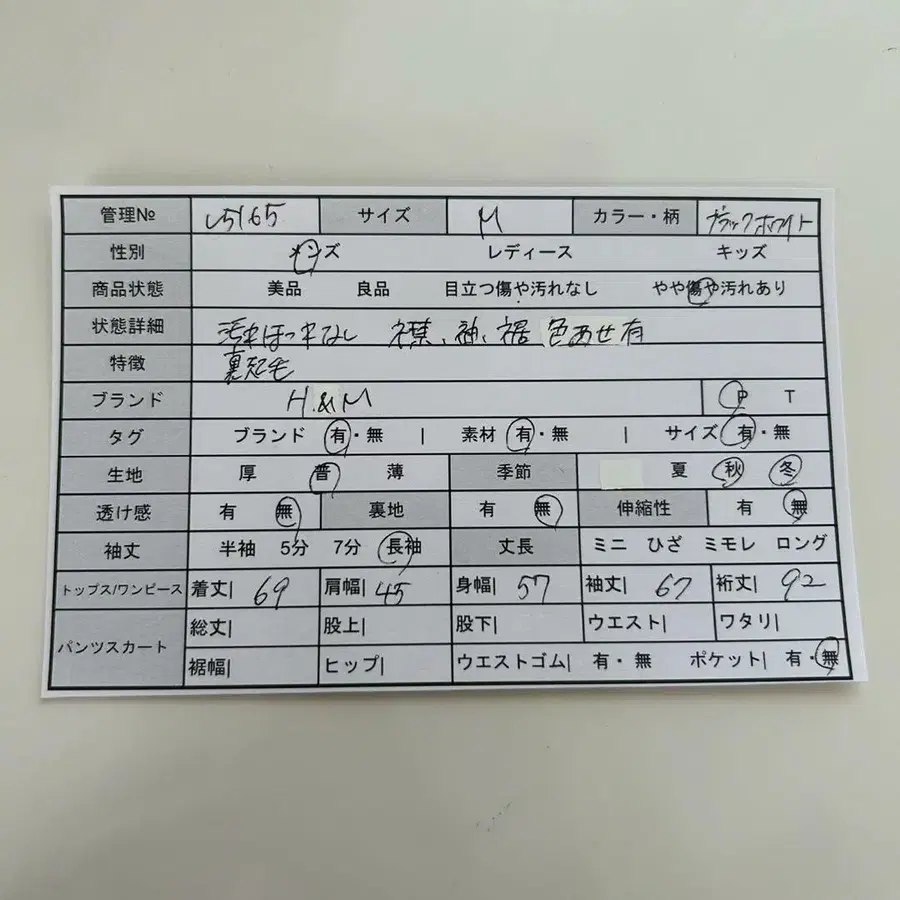 管理№ し5165 サイズ M カラー・柄 ブラックホワイト
性別 メンズ レディース キッズ
商品状態 美品 良品 目立つ傷や汚れなし やや傷や汚れあり
状態詳細 汚れほつれなし 襟、袖、裾 色あせ有
特徴 裏起毛
ブランド H&M P T
タグ ブランド 有・無 | 素材 有・無 | サイズ 有・無
生地 厚 普 薄 季節 夏 秋 冬
透け感 有 無 裏地 有 無 伸縮性 有 無
袖丈 半袖 5分 7分 長袖 丈長 ミニ ひざ ミモレ ロング
トップス/ワンピース 着丈| 69 肩幅| 45 身幅| 57 袖丈| 67 裄丈| 92
パンツスカート 総丈| 股上| 股下| ウエスト| ワタリ|
裾幅| ヒップ| ウエストゴム| 有・無 ポケット| 有・無